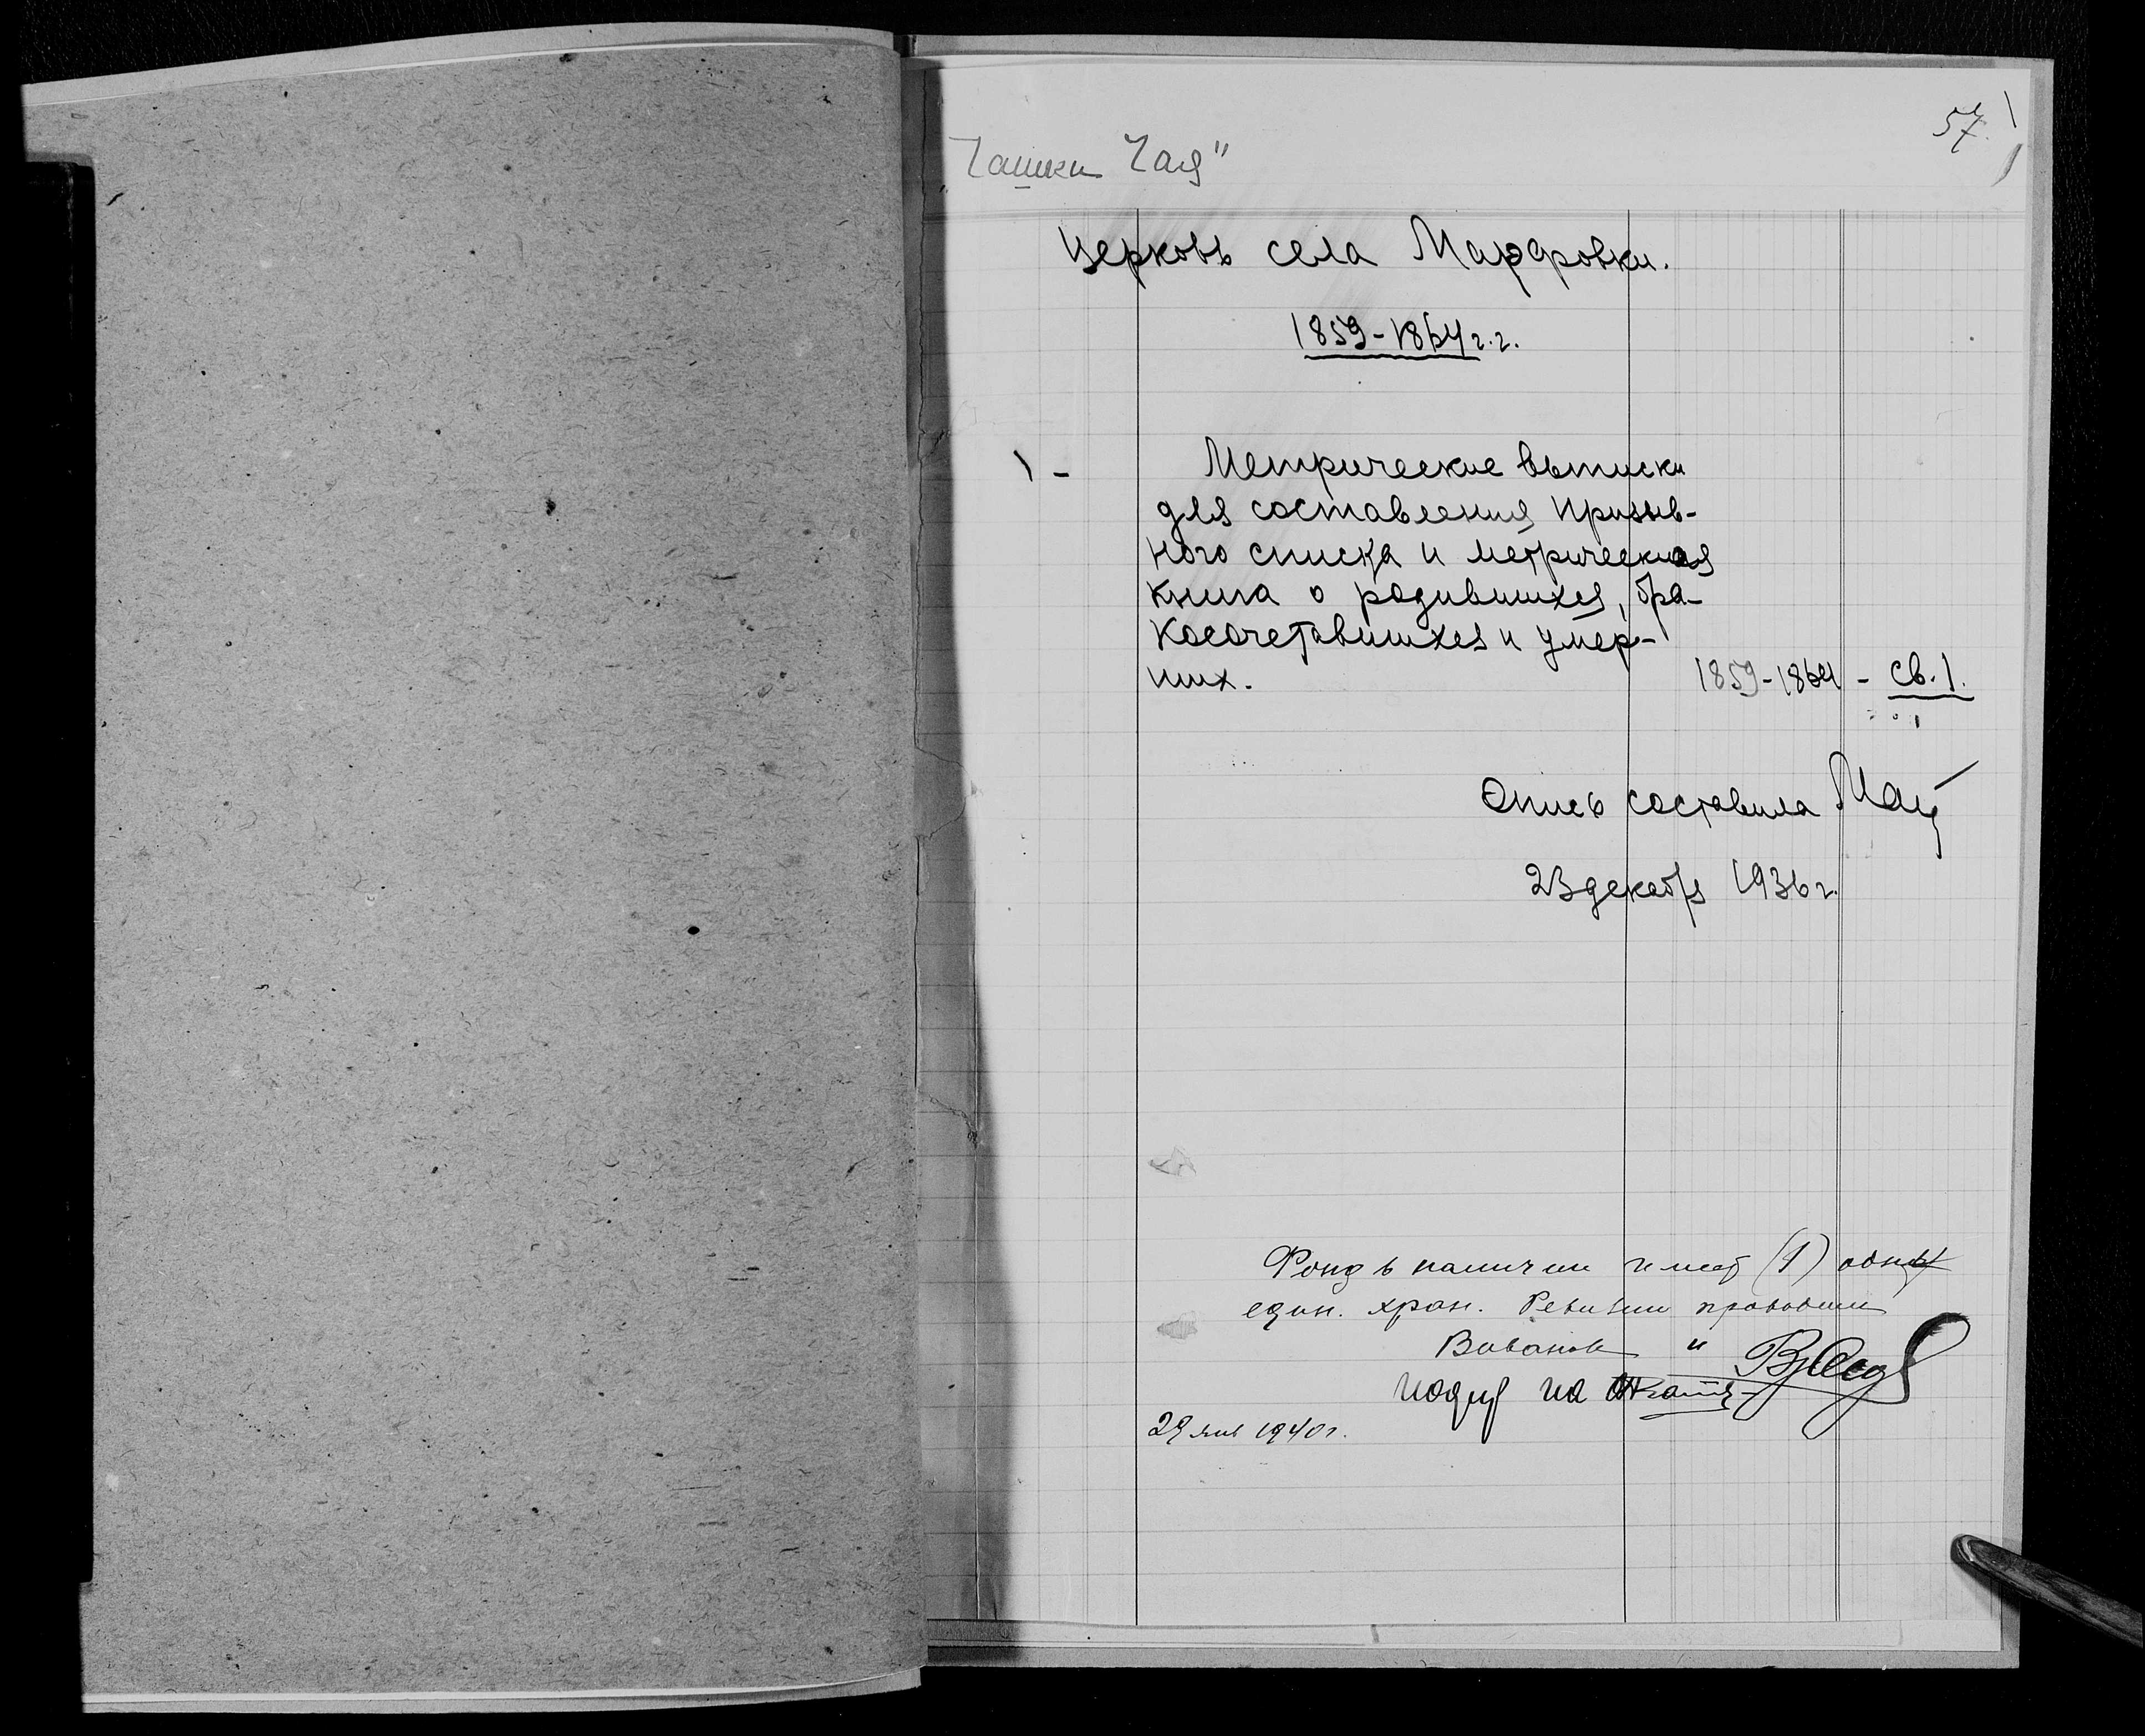 57.
Чашки Чая"
Церковь села Марфовки.
1859-1864 г.г.
1 - Метрические выписки
для составления Призыв-
ного списка и метрическая
книга о родившихся, бра-
косочетавшихся и умер-
ших. 1859-1864 - св. 1.
Опись составила
23 декабря 1936 г.
Фонд в наличии имеет (1) одну
един. хран. Ревизии проводили
и
29 янв 1940 г.